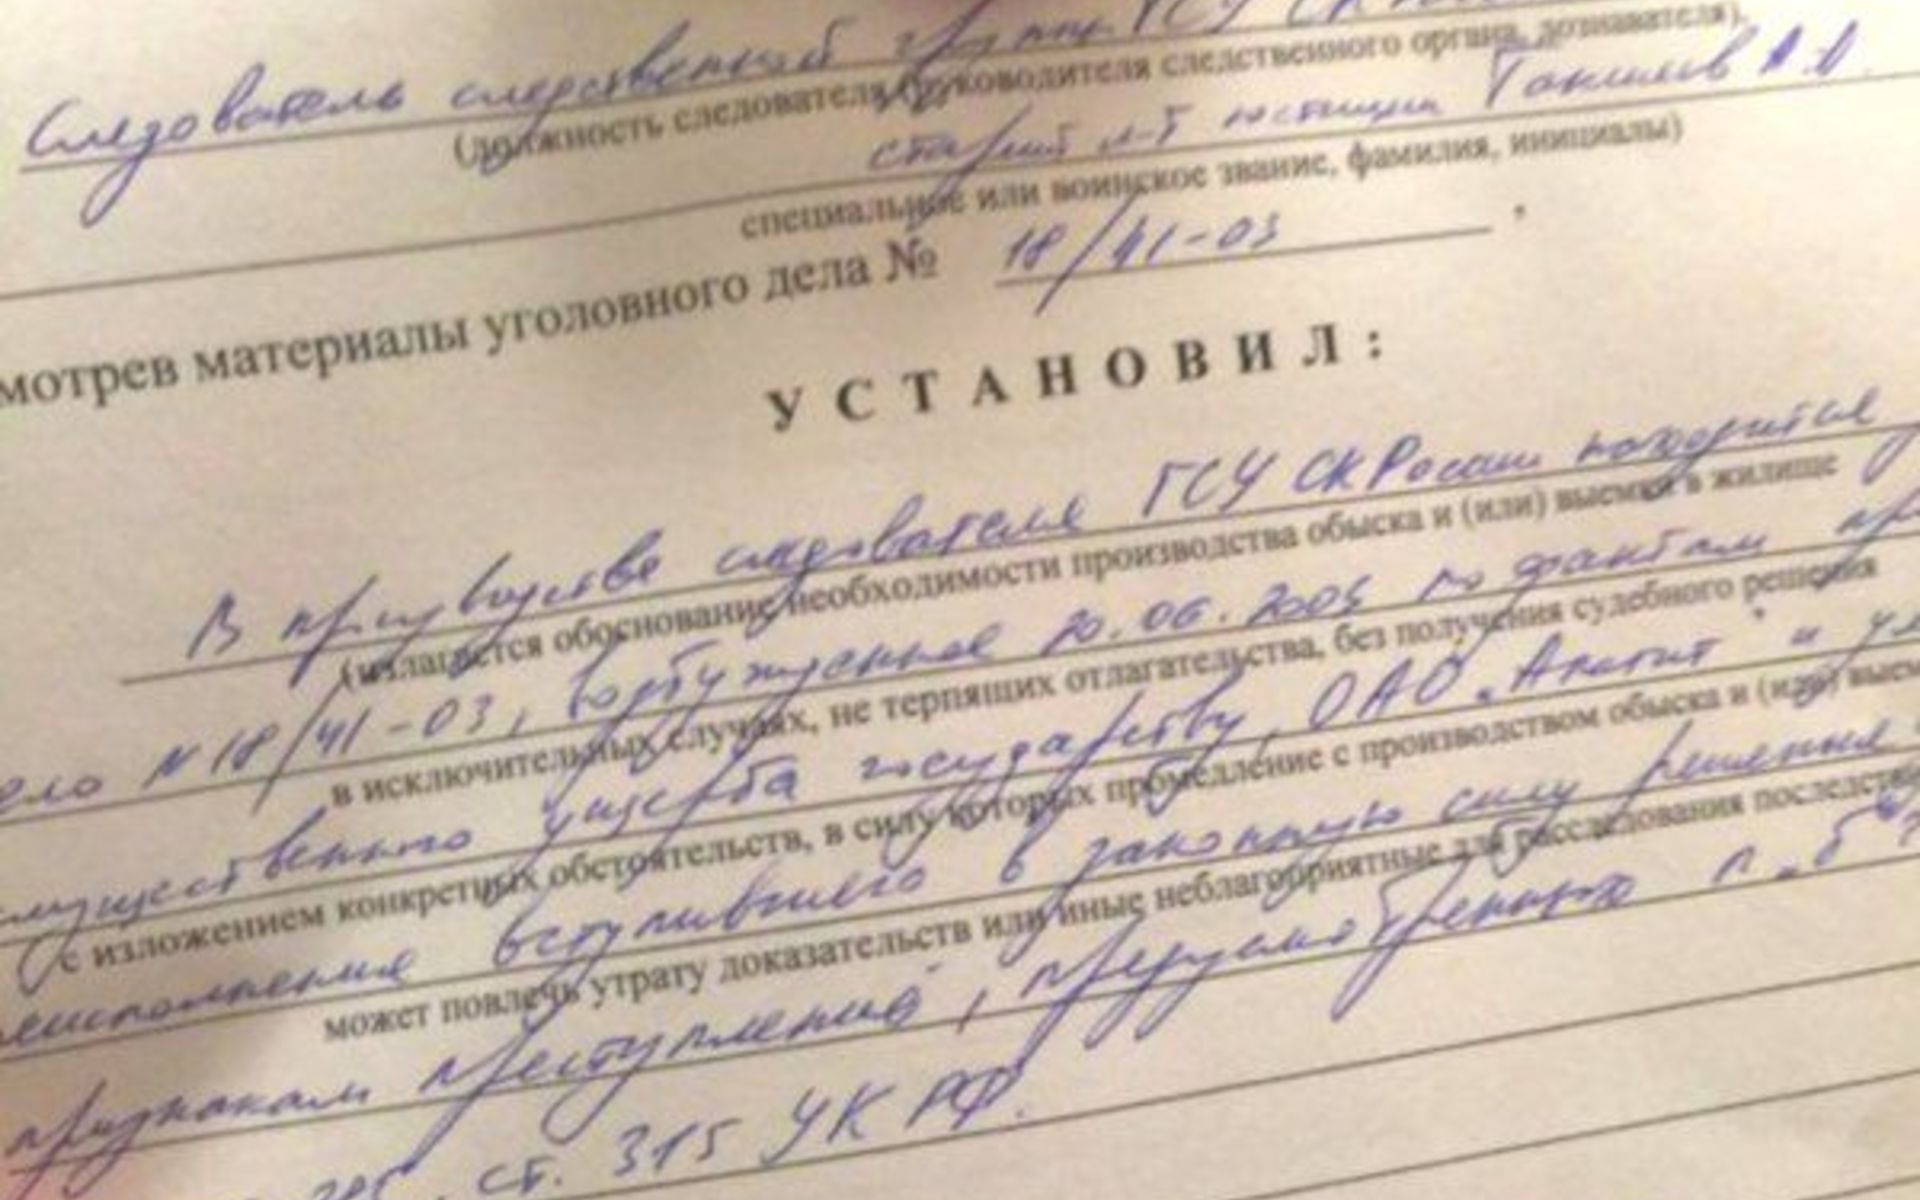 Следователь следственной группы ГСУ СК
(должность следователя, руководителя следственного органа, дознавателя),
старший л-т юстиции А.А.
специальное или воинское звание, фамилия, инициалы)
мотрев материалы уголовного дела № 18/41-03 ,
УСТАНОВИЛ:
В производстве следователя ГСУ СК России находится
(излагается обоснование необходимости производства обыска и (или) выемки в жилище
дело N 18/41-03, возбужденное 20.06. по фактам
в исключительных случаях, не терпящих отлагательства, без получения судебного решения
имущественного ущерба государству, ОАО „Апатит" и
с изложением конкретных обстоятельств, в силу которых промедление с производством обыска и (или) выем
неисполнения вступившего в законную силу решения
может повлечь утрату доказательств или иные неблагоприятные для расследования последств
признакам преступлений, предусмотренных п. „б"
ст. 315 УК РФ.